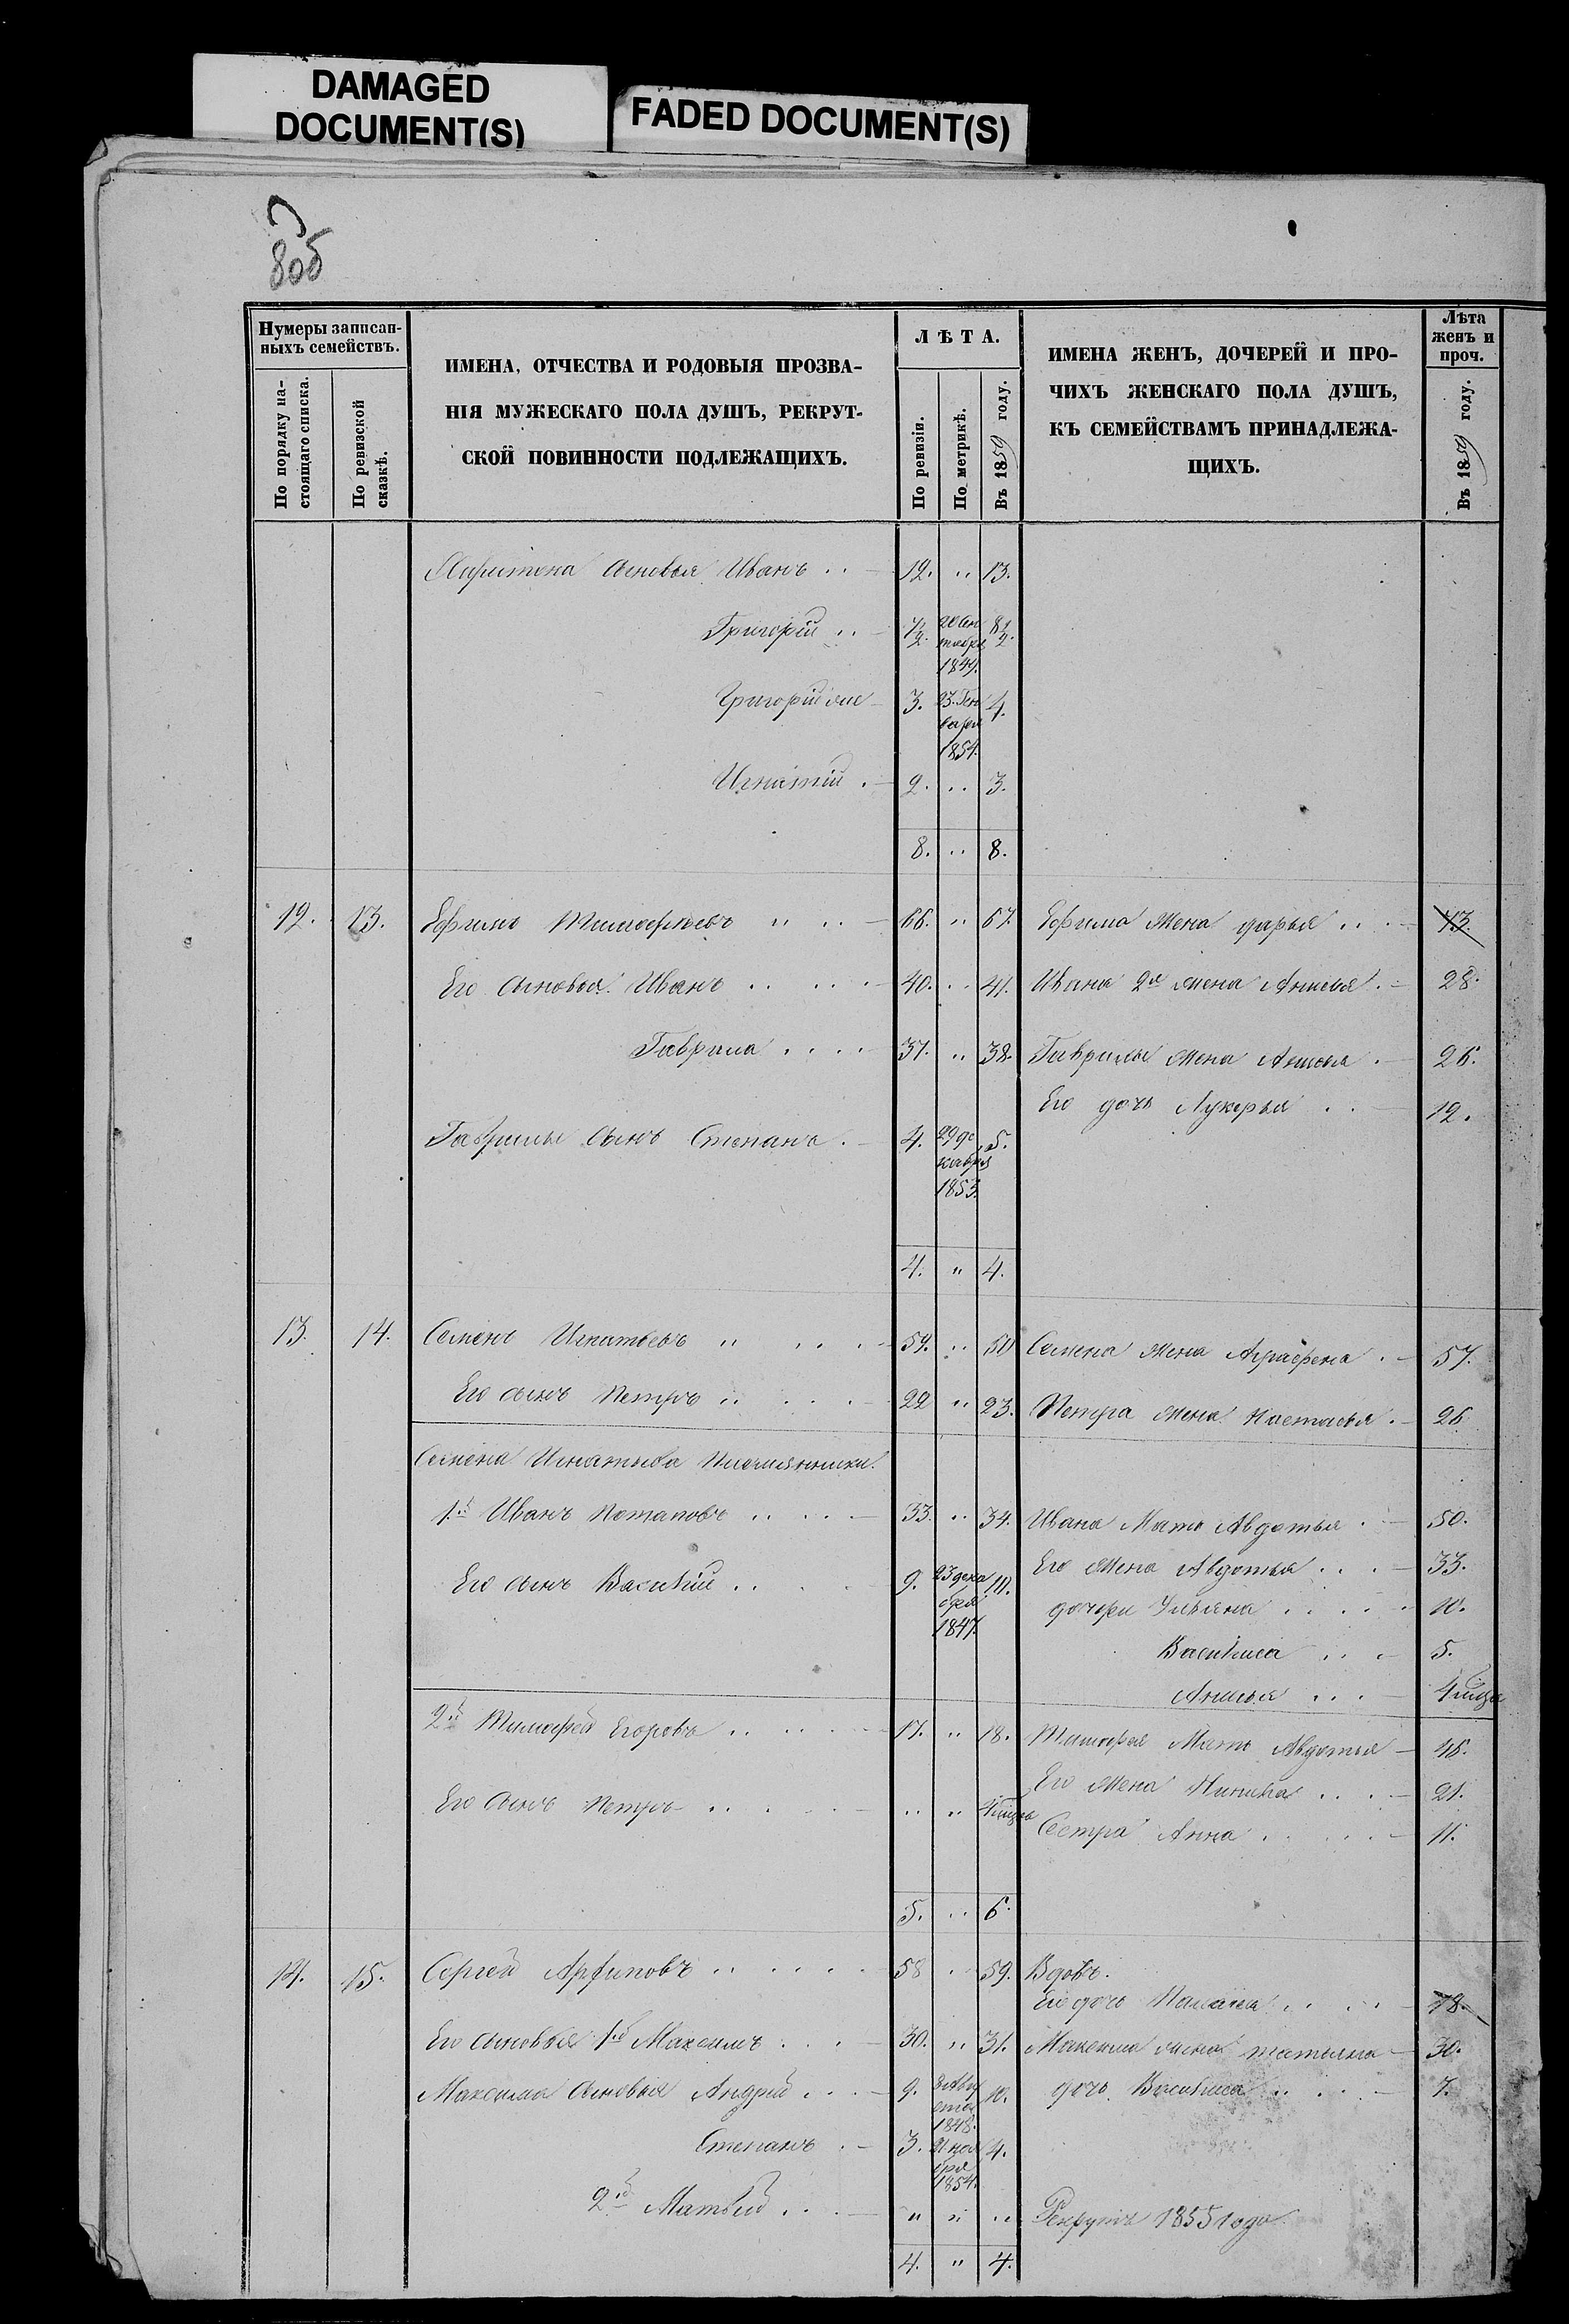 DAMAGED
DOCUMENT(S)
FADED DOCUMENT(S)
8об
Нумеры записан-
ныхъ семействъ.
По порядку на-
стоящаго списка.
По ревизской
сказкѣ.
ИМЕНА, ОТЧЕСТВА И РОДОВЫЯ ПРОЗВА-
НІЯ МУЖЕСКАГО ПОЛА ДУШЪ, РЕКРУТ-
СКОЙ ПОВИННОСТИ ПОДЛЕЖАЩИХЪ.
ЛѢТА.
По ревизіи.
По метрикѣ.
Въ 1859 году.
ИМЕНА ЖЕНЪ, ДОЧЕРЕЙ И ПРО-
ЧИХЪ ЖЕНСКАГО ПОЛА ДУШЪ,
КЪ СЕМЕЙСТВАМЪ ПРИНАДЛЕЖА-
ЩИХЪ.
Лѣта
женъ и
проч.
Въ 1859 году.
Харитона сыновья Иванъ 12. 13.
Григорій 7½ 8½.
1849.
Григорій же 3. 23. Ген
варя 4.
1854.
Игнатій 2. 3.
8. 8.
12. 13. Ефимъ Тимофѣевъ 66. 67. Ефима жена дарья 43.
Его сыновья Иванъ 40. 41. Ивана 2я жена Анисья 28.
Гаврила 37. 38. Гаврилы жена Анисья 26.
Его дочь Лукерья 12.
Гаврилы сынъ Степанъ 4. 29 де
кабря 5.
1853.
4. 4.
13. 14. Семенъ Игнатьевъ 59. Семена жена Аграфена 57.
Его сынъ Петръ 22 23. Петра жена Настасья 26
Семена Игнатьева племянники.
1й Иванъ Потаповъ 33. 34. Ивана Мать Авдотья 50.
Его сынъ Василій 9. 23 дека
бря 10. Его жена Авдотья 33.
1847. дочери Ульяна 10.
Василиса 5.
Анисья 4 мѣсяца
2й Тимофей Егоровъ 17. 18. Тимофея Мать Авдотья 46.
Его жена 21.
Его сынъ Петръ
Сестра Анна 11.
5. 6.
14. 15. Сергей Архиповъ 58 59. Вдовъ.
Его дочь 18.
Его сыновья 1й Максимъ 30. 31. Максима жена татьяна 30.
Максима сыновья Андрей 9. Авгу
ста 10. дочь Василиса 7.
1848.
Степанъ 3. 21 ноя
бря 4.
1854.
2й Матвей Рекрутъ 1855 года.
4. 4.